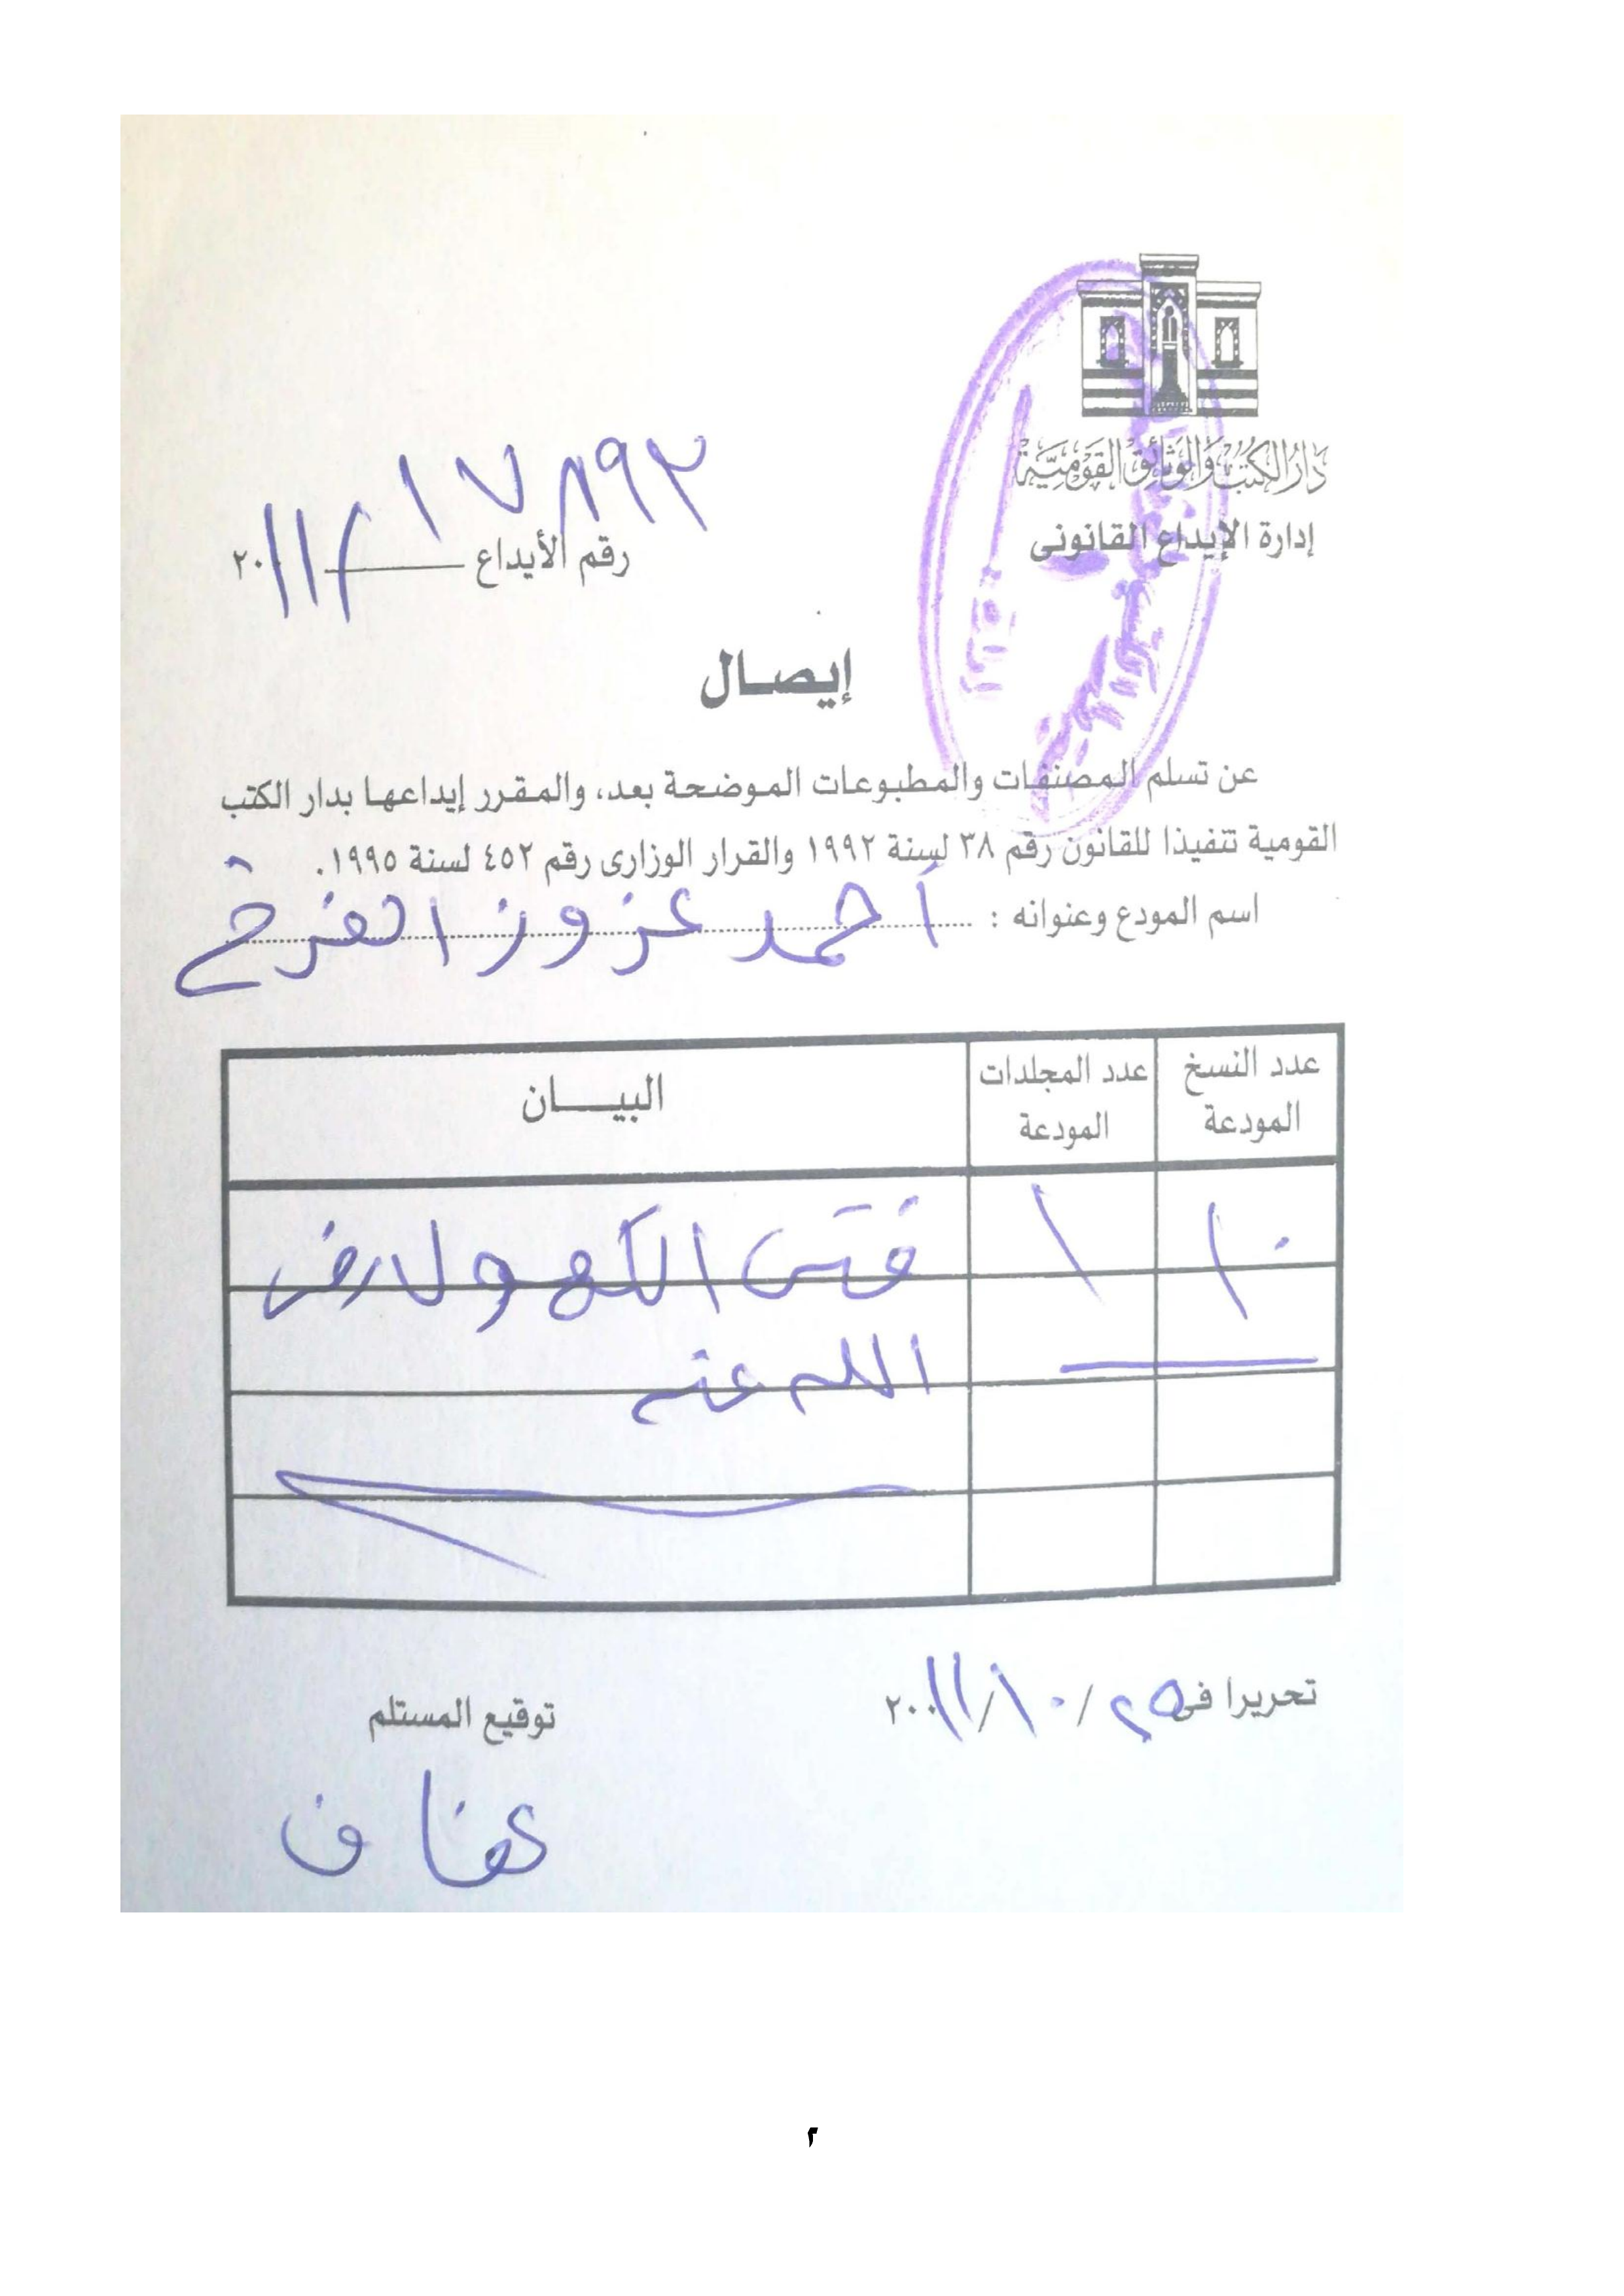 دار الكتب والوثائق القومية
إدارة الإيداع القانونى
١٧٨٩٢
رقم الأيداع / ٢٠١١
إيصال
عن تسلم المصنفات والمطبوعات الموضحة بعد، والمقرر إيداعها بدار الكتب
القومية تنفيذا للقانون رقم ٣٨ لسنة ١٩٩٢ والقرار الوزارى رقم ٤٥٢ لسنة ١٩٩٥.
اسم المودع وعنوانه : أحمد عزوز الفرخ
عدد النسخ المودعة
عدد المجلدات المودعة
البيــــان
١٠ ١ فتى الكهول رضى
الله عنه
تحريرا فى ٢٥ / ١٠ / ٢٠١١
توقيع المستلم
عفاف
٢